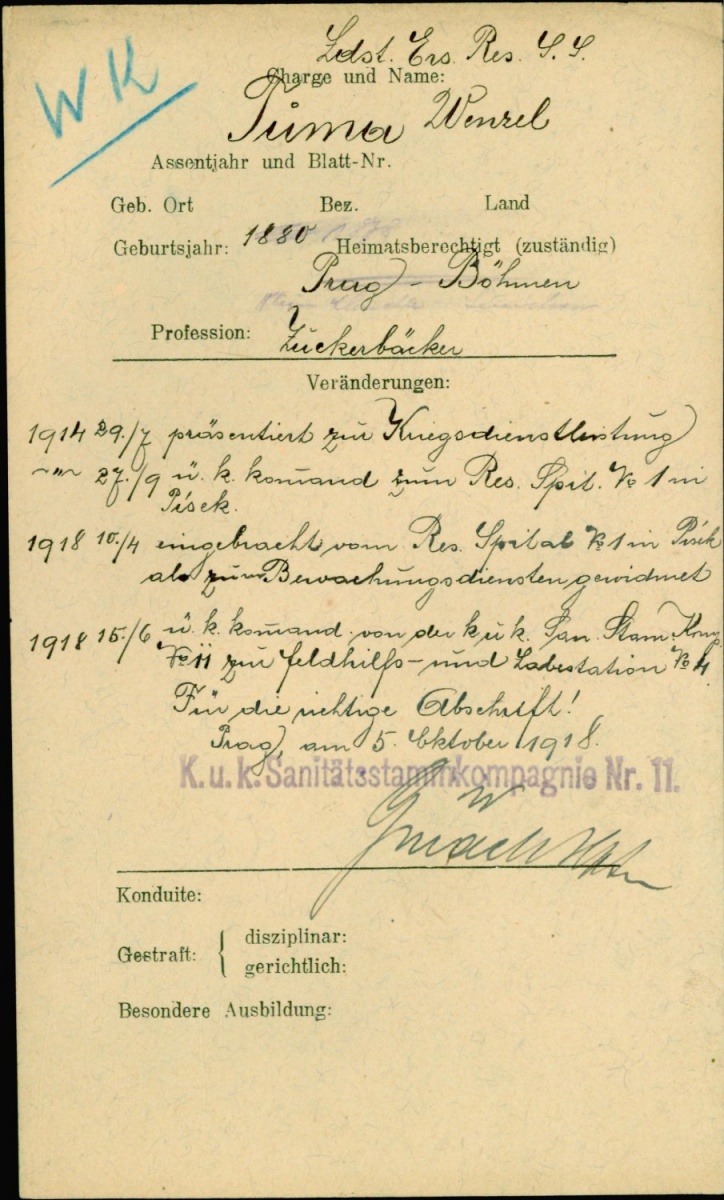 Ldst. Ers. Res. S. S.
WK
Charge und Name:
Tuma Wenzel
Assentjahr und Blatt-Nr.
Geb. Ort Bez. Land
Geburtsjahr: 1880 Heimatsberechtigt (zuständig)
Prag - Böhmen
Profession: Zuckerbäcker
Veränderungen:
1914 29./7 präsentiert zur Kriegsdienstleistung
~"~ 27./9 ü. k. komand zum Res. Spit. No 1 in
Písek.
1918 10./4 eingebracht vom Res. Spital No 1 in Písek
als zum Bewachungsdiensten gewidmet
1918 15./6 ü. k. komand. von der k u k. San. Stam. Komp.
No 11 zur Feldhilfs- und Labestation No 4.
Für die richtige Abschrift!
Prag, am 5. Oktober 1918.
K. u. k. Sanitätsstammkompagnie Nr. 11.
Konduite:
Gestraft: { disziplinar:
gerichtlich:
Besondere Ausbildung: